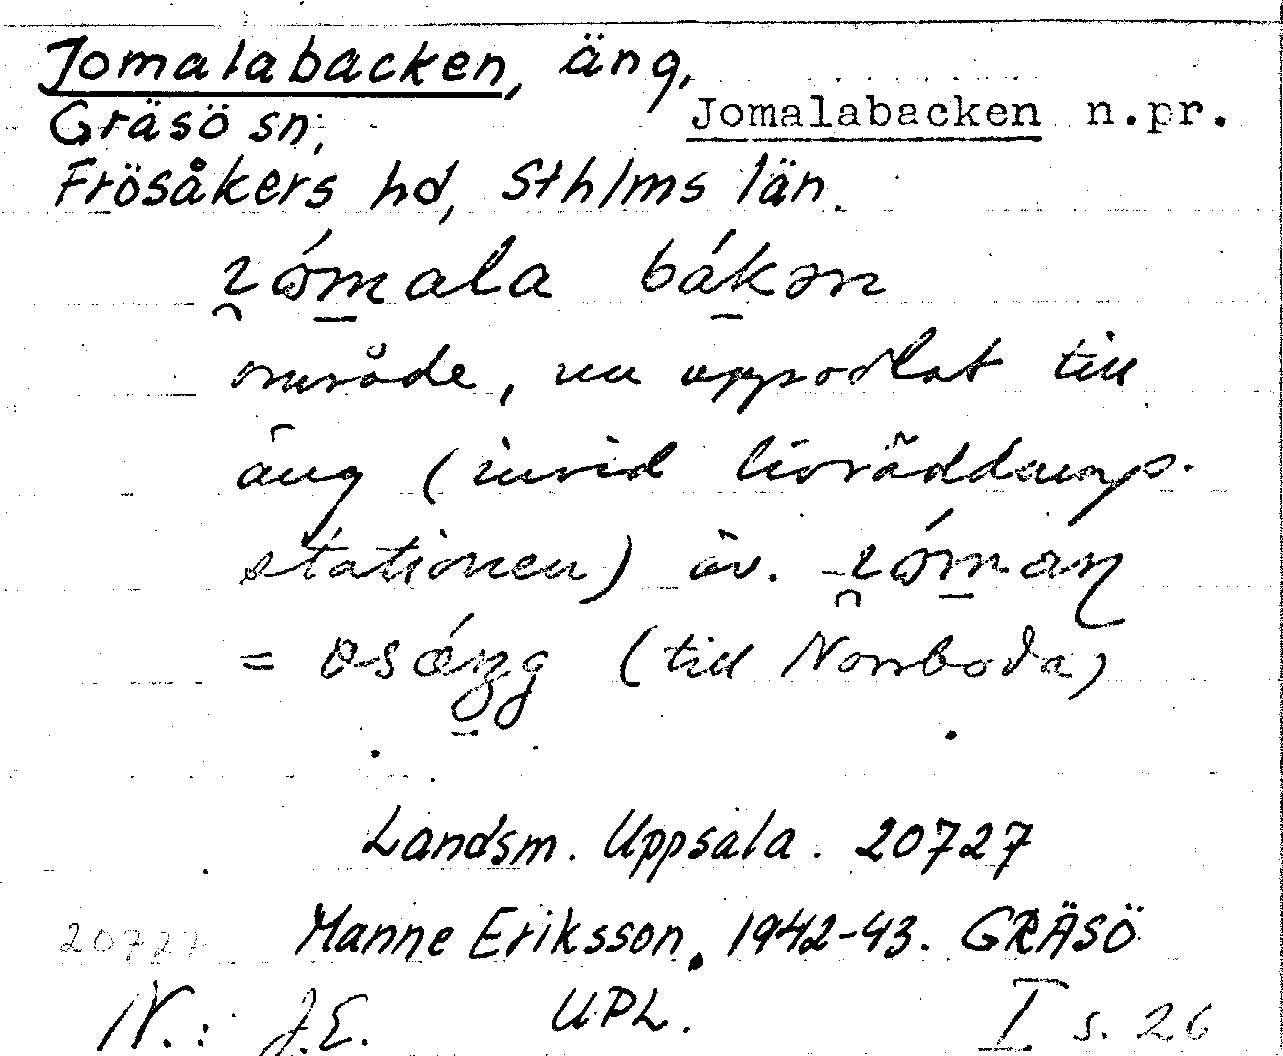 Jomalabacken, äng,
Jomalabacken n.pr.
Gräsö sn,
Frösåkers hd, Sthlms län.
område, nu uppodlat till
äng (invid livräddnings-
stationen) äv.
= (till Norrboda)
Landsm. Uppsala. 20727
20727 Manne Eriksson. 1942-43. GRÄSÖ
N.: J.E. UPL. I s. 26